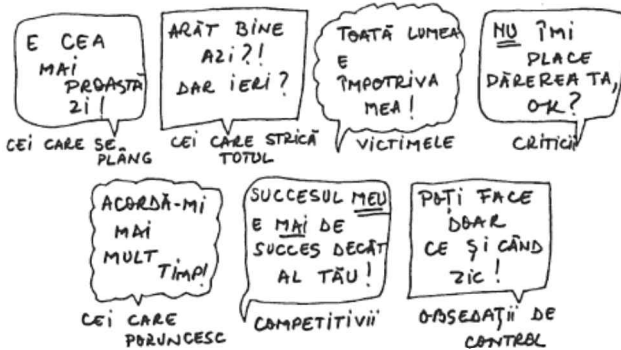 E CEA
MAI
PROASTĂ
ZI!
CEI CARE SE
PLÂNG
ARĂT BINE
AZI?!
DAR IERI?
CEI CARE STRICĂ
TOTUL
TOATĂ LUMEA
E
ÎMPOTRIVA
MEA!
VICTIMELE
NU ÎMI
PLACE
PĂREREA TA,
OK?
CRITICII
ACORDĂ-MI
MAI
MULT
TIMP!
CEI CARE
PORUNCESC
SUCCESUL MEU
E MAI DE
SUCCES DECÂT
AL TĂU!
COMPETITIVII
POȚI FACE
DOAR
CE ȘI CÂND
ZIC!
OBSEDAȚII DE
CONTROL